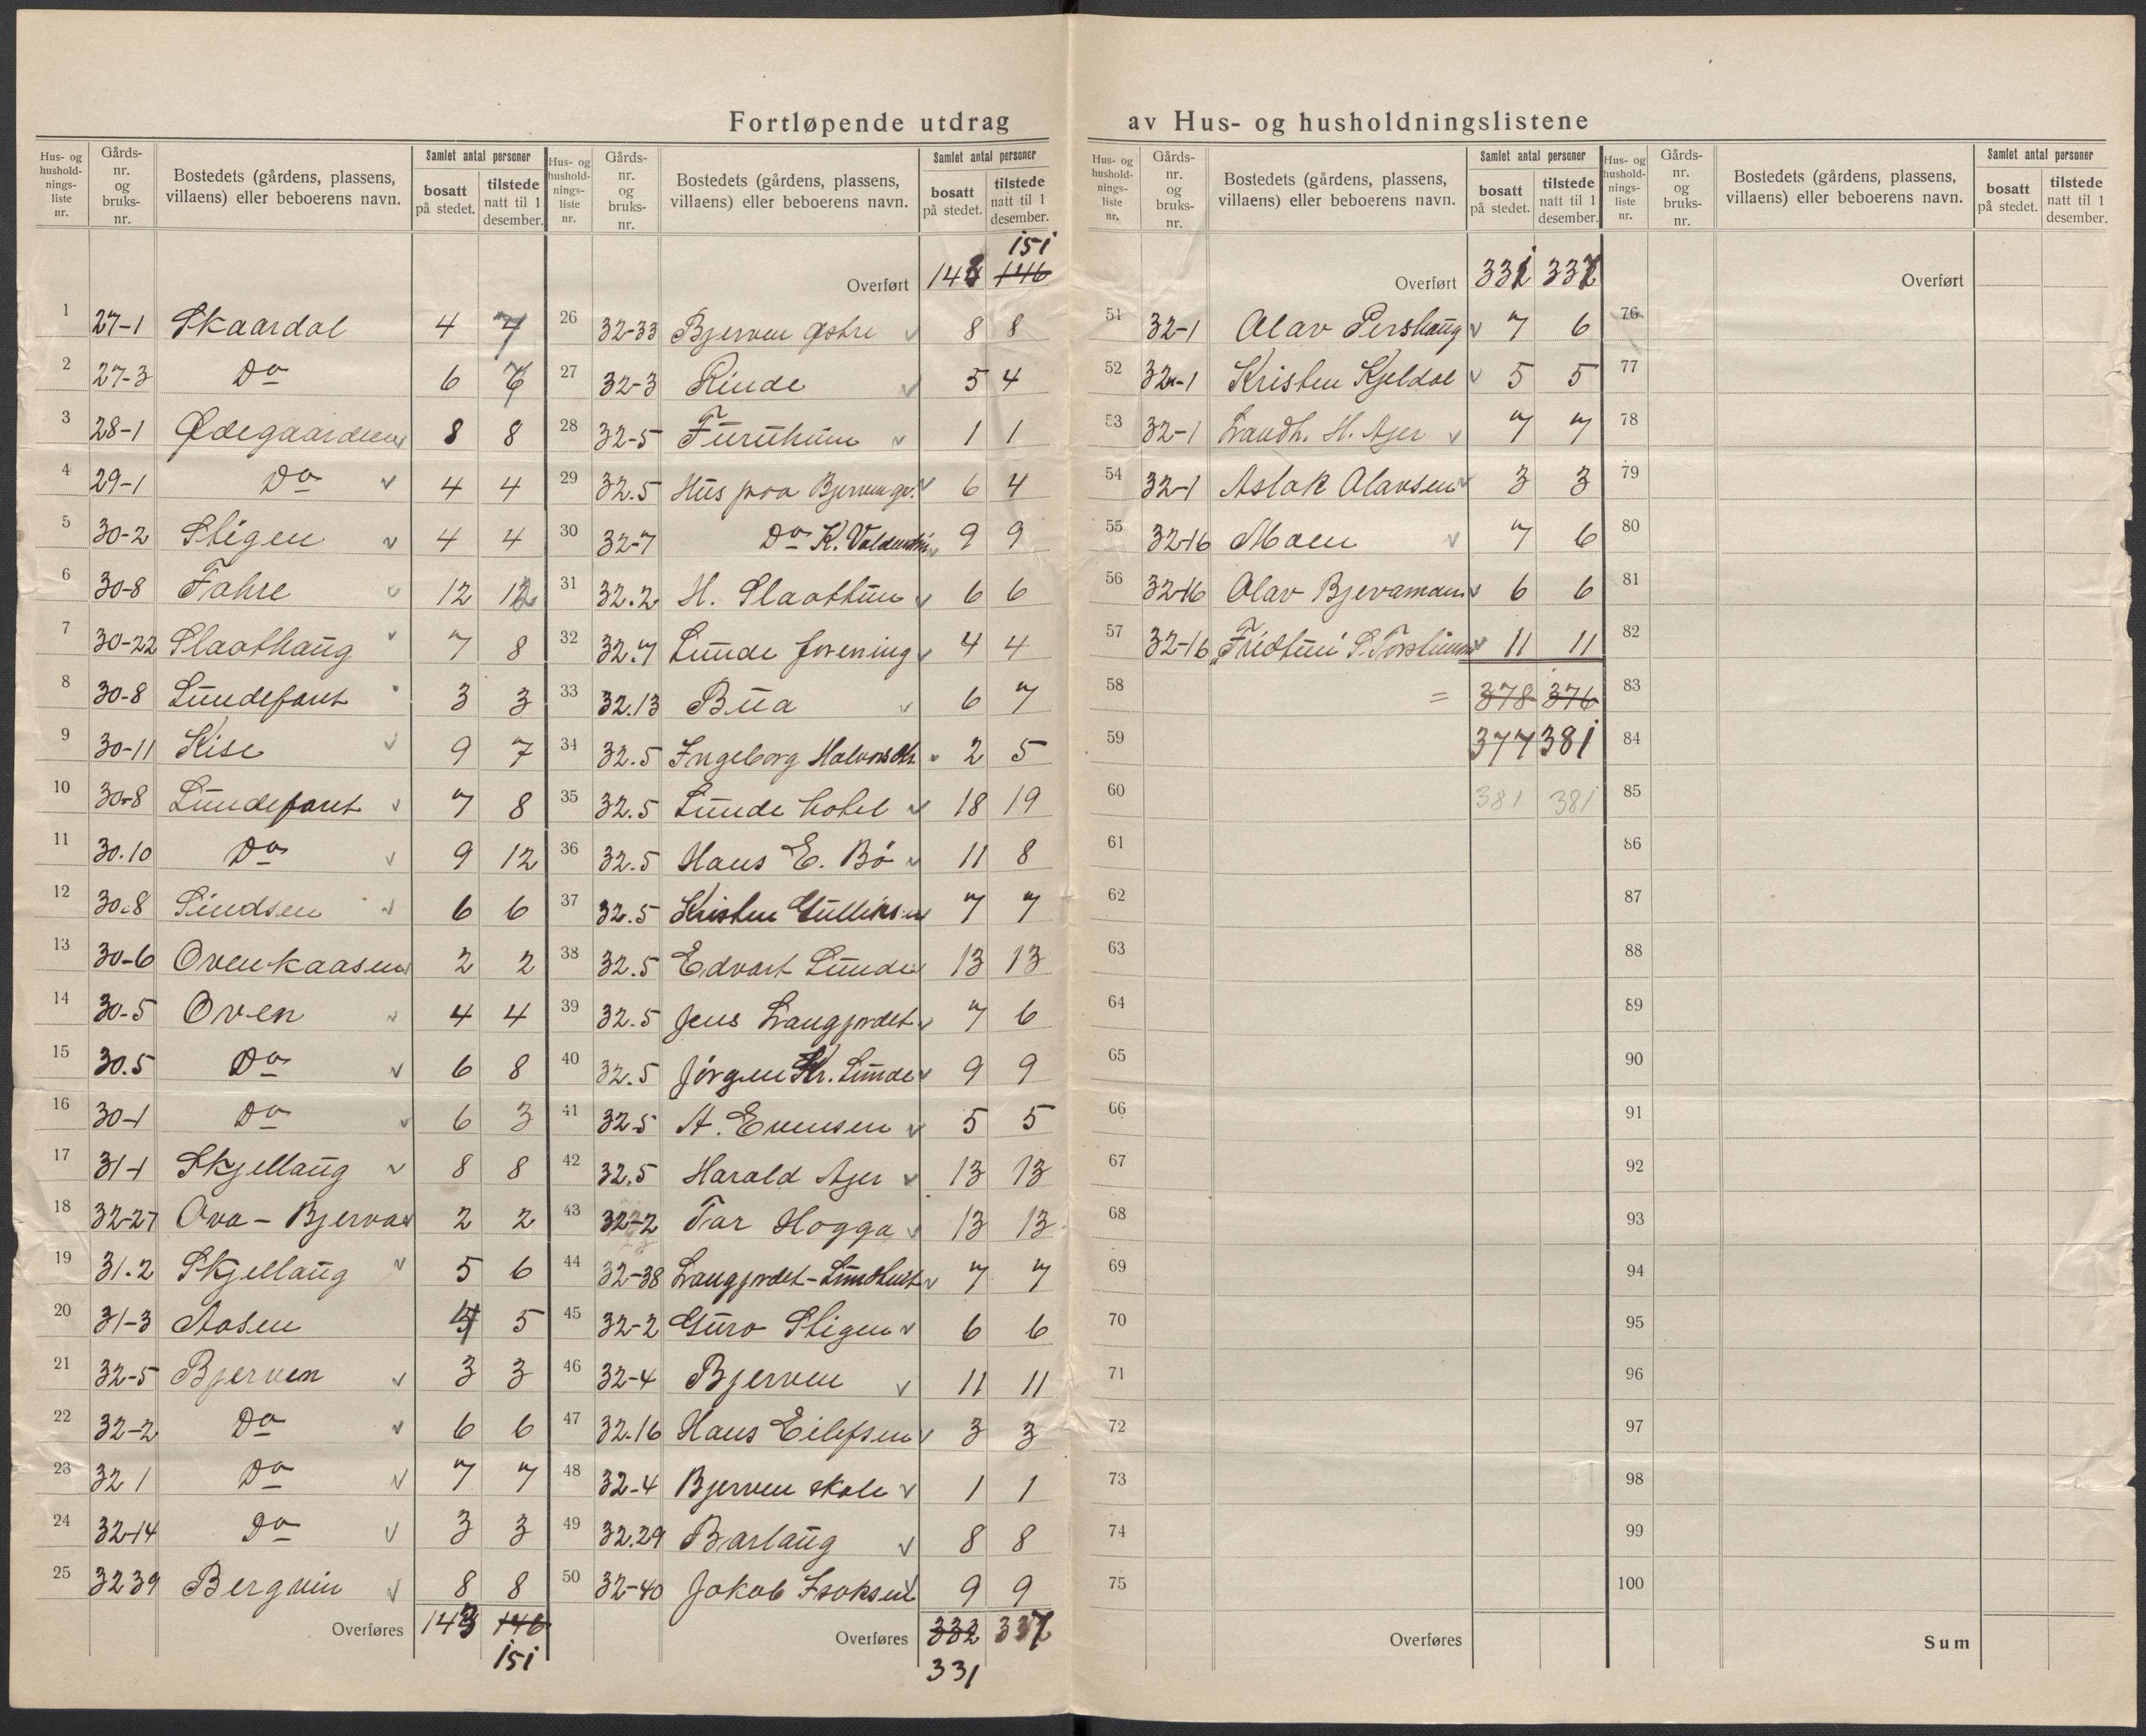 Fortløpende utdrag av Hus- og husholdningslistene
Hus- og husholdningsliste nr. | Gårds-nr. og bruks-nr. | Bostedets (gårdens, plassens, villaens) eller beboerens navn. | Samlet antal personer: bosatt på stedet. | tilstede natt til 1 desember.
1 27-1 Skaardal 4 4
2 27-3 Do 6 6
3 28-1 Ødegaarden 8 8
4 29-1 Do 4 4
5 30-2 Stigen 4 4
6 30-8 Fahre 12 12
7 30-22 Slaathaug 7 8
8 30-8 Lundefaret 3 3
9 30-11 Kise 9 7
10 30-8 Lundefaret 7 8
11 30.10 Do 9 12
12 30.8 Lindsen 6 6
13 30-6 Ovenkaasen 2 2
14 30-5 Oven 4 4
15 30.5 Do 6 8
16 30-1 Do 6 3
17 31-1 Skjellaug 8 8
18 32-27 Ova - Bjerva 2 2
19 31.2 Skjellaug 5 6
20 31-3 Aasen 4 5
21 32-5 Bjerven 3 3
22 32-2 Do 6 6
23 32 1 Do 7 7
24 32-14 Do 3 3
25 32 39 Bergvin 8 8
Overføres 143 146
151
Hus- og husholdningsliste nr. | Gårds-nr. og bruks-nr. | Bostedets (gårdens, plassens, villaens) eller beboerens navn. | Samlet antal personer: bosatt på stedet. | tilstede natt til 1 desember.
151
Overført 143 146
26 32-33 Bjerven østre 8 8
27 32-3 Rinde 5 4
28 32-5 Furuheim 1 1
29 32.5 Hus paa Bjerven gr. 6 4
30 32-7 Do K. 9 9
31 32.2 H. Slaattun 6 6
32 32.7 Lunde forening 4 4
33 32.13 Bua 6 7
34 32.5 Ingeborg Halvorsdtr. 2 5
35 32.5 Lunde hotel 18 19
36 32.5 Hans E. Bö 11 8
37 32.5 Kristen Gulliksen 7 7
38 32.5 Edvart Lunde 13 13
39 32.5 Jens Langjordet 7 6
40 32.5 Jörgen Kr. Lunde 9 9
41 32.5 A. Evensen 5 5
42 32.5 Harald Ajer 13 13
43 32-2 Tar Hogga 13 13
44 32-38 Langjordet - 7 7
45 32-2 Guro Stigen 6 6
46 32-4 Bjerven 11 11
47 32.16 Hans Eilefsen 3 3
48 32-4 Bjerven skole 1 1
49 32.29 Barlaug 8 8
50 32-40 Jakob Isaksen 9 9
Overføres 332 337
331
Hus- og husholdningsliste nr. | Gårds-nr. og bruks-nr. | Bostedets (gårdens, plassens, villaens) eller beboerens navn. | Samlet antal personer: bosatt på stedet. | tilstede natt til 1 desember.
Overført 331 337
51 32-1 Olav Pershaug 7 6
52 32-1 Kristen Kjeldal 5 5
53 32-1 Landh. H. Ajer 7 7
54 32-1 Aslak Olavsen 3 3
55 32-16 Moen 7 6
56 32-16 Olav Bjervamoen 6 6
57 32-16 "Fridtun" 11 11
58 = 378 376
59 377 381
60 381 381
61
62
63
64
65
66
67
68
69
70
71
72
73
74
75
Overføres
Hus- og husholdningsliste nr. | Gårds-nr. og bruks-nr. | Bostedets (gårdens, plassens, villaens) eller beboerens navn. | Samlet antal personer: bosatt på stedet. | tilstede natt til 1 desember.
Overført
76
77
78
79
80
81
82
83
84
85
86
87
88
89
90
91
92
93
94
95
96
97
98
99
100
Sum